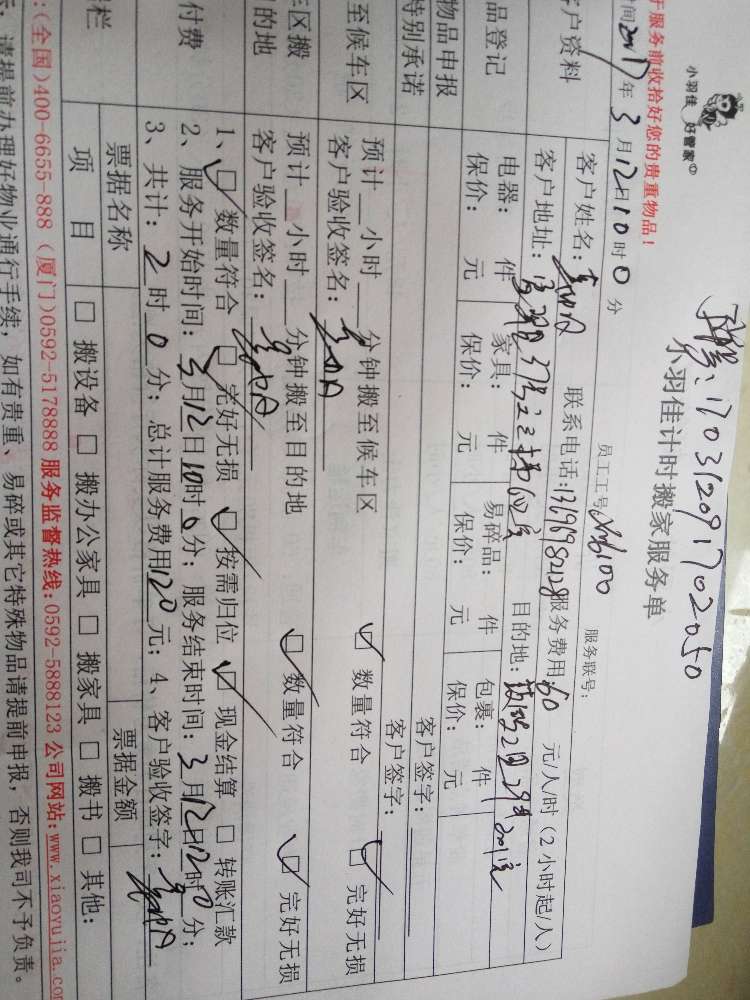 小羽佳 好管家
于服务前收拾好您的贵重物品！
170312091702050
小羽佳计时搬家服务单
时间2017年3月12日10时0分
员工工号：xm6100
服务联号：
客户资料
客户姓名：
联系电话：
服务费用：60元/人/时（2小时起/人）
客户地址：
目的地：
品登记
电器： 件 家具： 件 易碎品： 件 包裹： 件
保价： 元 保价： 元 保价： 元 保价： 元
物品申报
客户签字：
特别承诺
客户签字：
至候车区
预计__小时__分钟搬至候车区 ☑ 数量符合 ☑ 完好无损
客户验收签名：
车区搬
目的地
预计__小时__分钟搬至目的地 ☑ 数量符合 ☑ 完好无损
客户验收签名：
付费
1、☑ 数量符合 ☑ 完好无损 ☑ 按需归位 ☑ 现金结算 □ 转账汇款
2、服务开始时间：3月12日10时0分；服务结束时间：3月12日12时0分；
3、共计：2时0分；总计服务费用120元；4、客户验收签字：
票据名称
票据金额
栏
项 目 □ 搬设备 □ 搬办公家具 □ 搬家具 □ 搬书 □ 其他：
：(全国)400-6655-888 (厦门)0592-5178888 服务监督热线：0592-5888123 公司网站：www.xiaoyujia.com
，请提前办理好物业通行手续，如有贵重、易碎或其它特殊物品请提前申报，否则我司不予负责。